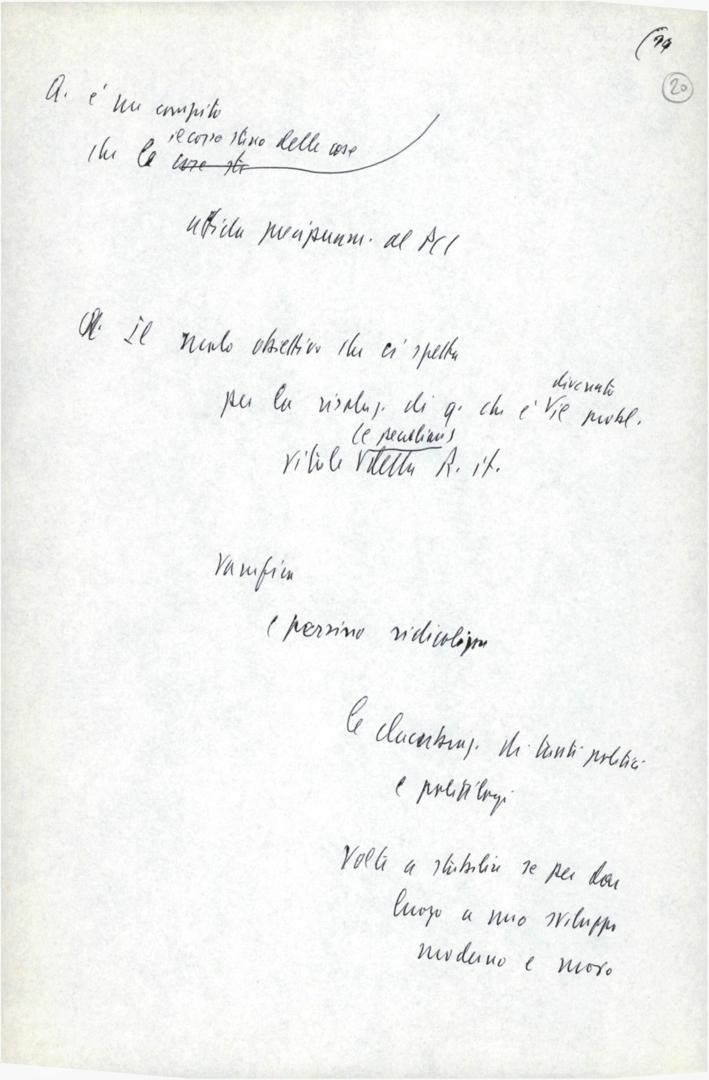 (19
20
A. è un compito
il corso stesso delle cose
che le cose st
affida precipuam. al PCI
A. Il ruolo obiettivo che ci spetta
divenuto
per la risoluz. di q. che è il probl.
vitale della R. it.
vanifica
e persino ridicolizza
le elucubraz. di tanti politici
e politologi
volte a stabilire se per dare
luogo a uno sviluppo
moderno e nuovo